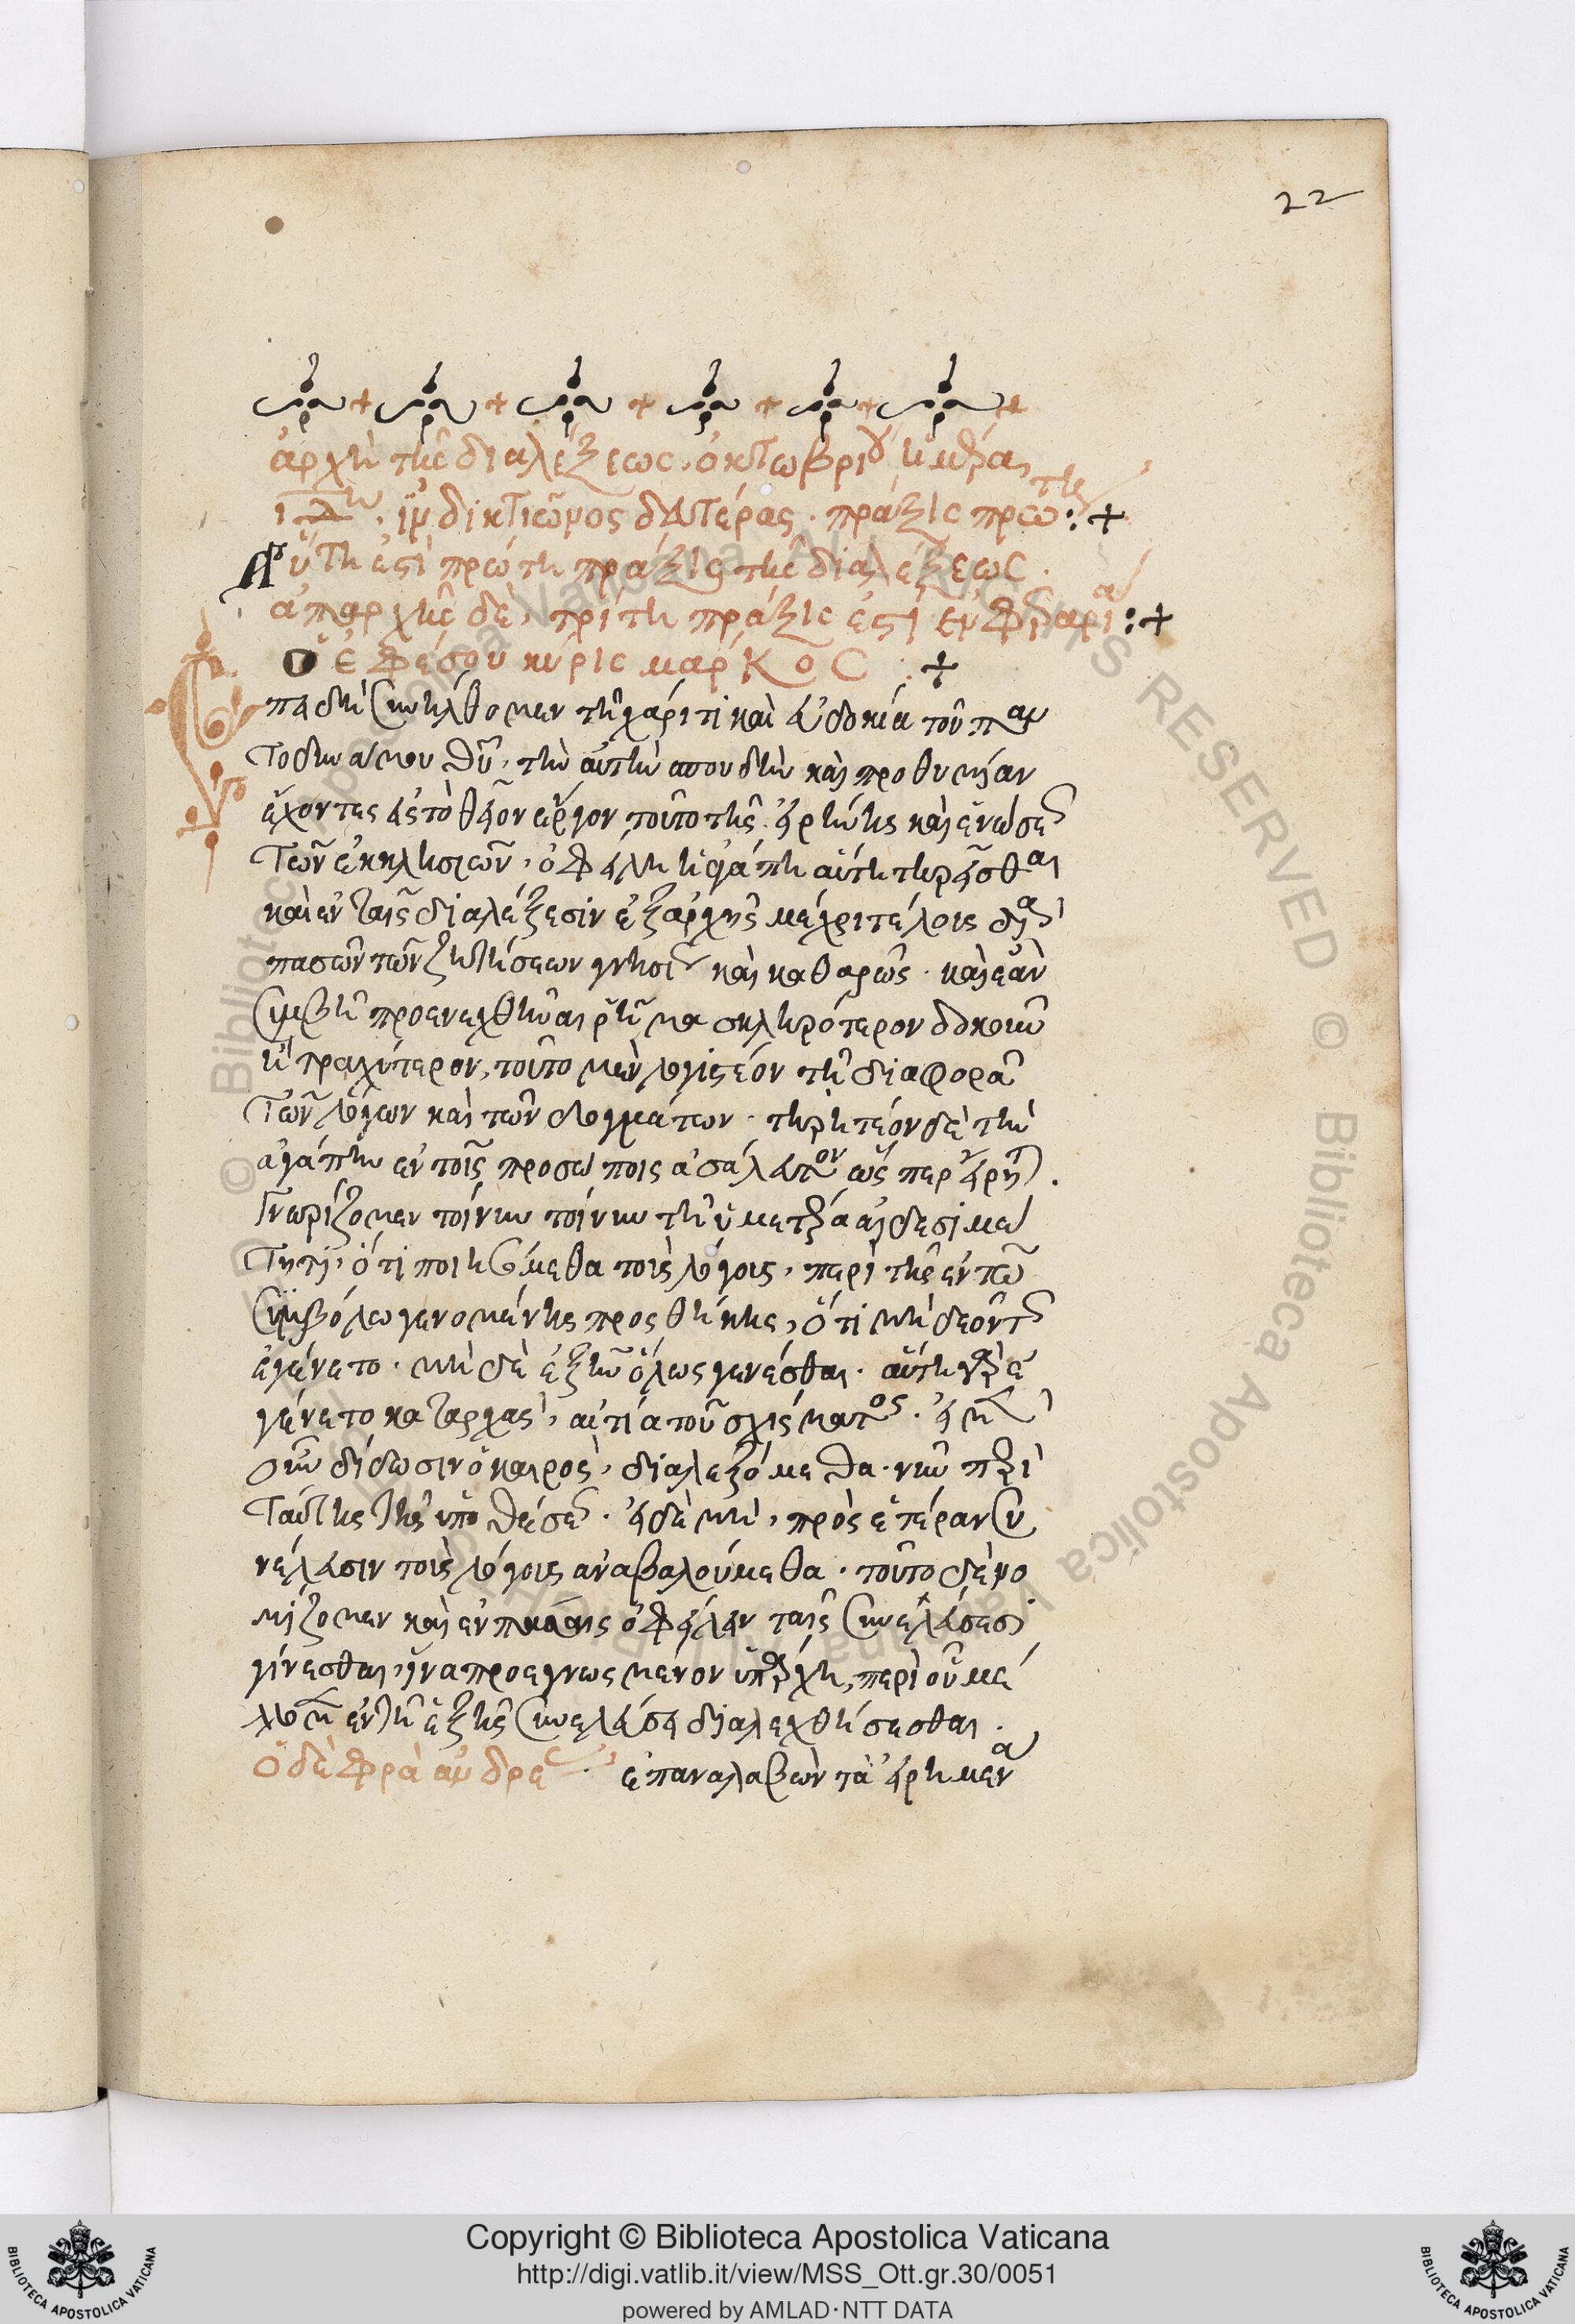 22
ἀρχὴ τῆς διαλέξεως. ὀκτωβρίου ἡμέρα τῇ
ιδη, ἰνδικτιῶνος δευτέρας. πράξις πρώ:+
Αὕτη ἐστὶ πρώτη πράξις τῆς διαλέξεως.
ἀπαρχῆς δὲ, τρίτη πράξις ἐστὶ ἐν φεραρία:+
Ὁ ἐφέσου κύρις μάρκος :+
Ἐπειδὴ συνήλθομεν τῇ χάριτι καὶ εὐδοκία τοῦ παν
τοδυνάμου θῦ, τὴν αὐτὴν σπουδὴν καὶ προθυμίαν
ἔχοντες εἰς τὸ θεῖον ἔργον τοῦτο τῆς εἰρήνης καὶ ἑνώσεως
τῶν ἐκκλησιῶν, ὀφείλει ἡ ἀγάπη αὕτη τηρεῖσθαι
καὶ ἐν ταῖς διαλέξεσιν ἐξαρχῆς μέχρι τέλους διὰ
πασῶν τῶν ζητήσεων γνησίως καὶ καθαρῶς. καὶ ἐὰν
συμβῆ προενεχθῆναι ῥῆμα σκληρότερον δοκοῦν
ἢ τραχύτερον, τοῦτο μὲν λογιστέον τῇ διαφορᾶ
τῶν λόγων καὶ τῶν δογμάτων. τηρητέον δὲ τὴν
ἀγάπην ἐν τοῖς προσώποις ἀσάλευτον ὥς περ εἴρηται.
Γνωρίζομεν τοίνυν τοίνυν τῇ ὑμετέρα αἰδεσιμό
τητι, ὅτι ποιησόμεθα τοὺς λόγους, περὶ τῆς ἐν τῶ
συμβόλω γενομένης προσθήκης, ὅτι μὴ δεόντως
ἐγένετο. μὴ δὲ ἐξῆν ὅλως γενέσθαι. αὕτη γὰρ ἐ
γένετο καταρχὰς, αἰτία τοῦ σχίσματος. εἰ μὲν
οὖν δίδωσιν ὁ καιρὸς, διαλεξόμεθα νῦν περὶ
ταύτης τῆς ὑποθέσεως. εἰ δὲ μὴ, πρὸς ἑτέραν συ
νέλευσιν τοὺς λόγους ἀναβαλούμεθα. τοῦτο δὲ νο
μίζομεν καὶ ἐν πάσαις ὀφείλειν ταῖς συνελεύσεσι
γίνεσθαι, ἵνα προεγνωσμένον ὑπάρχη, περὶ οὗ μέλ
λομεν ἐν τῇ ἑξῆς συνελεύσει διαλεχθήσεσθαι.
Ὁ δὲ φρὰ ἀνδρέας. ἐπαναλαβὼν τὰ εἰρημένα
Copyright © Biblioteca Apostolica Vaticana
http://digi.vatlib.it/view/MSS_Ott.gr.30/0051
powered by AMLAD·NTT DATA